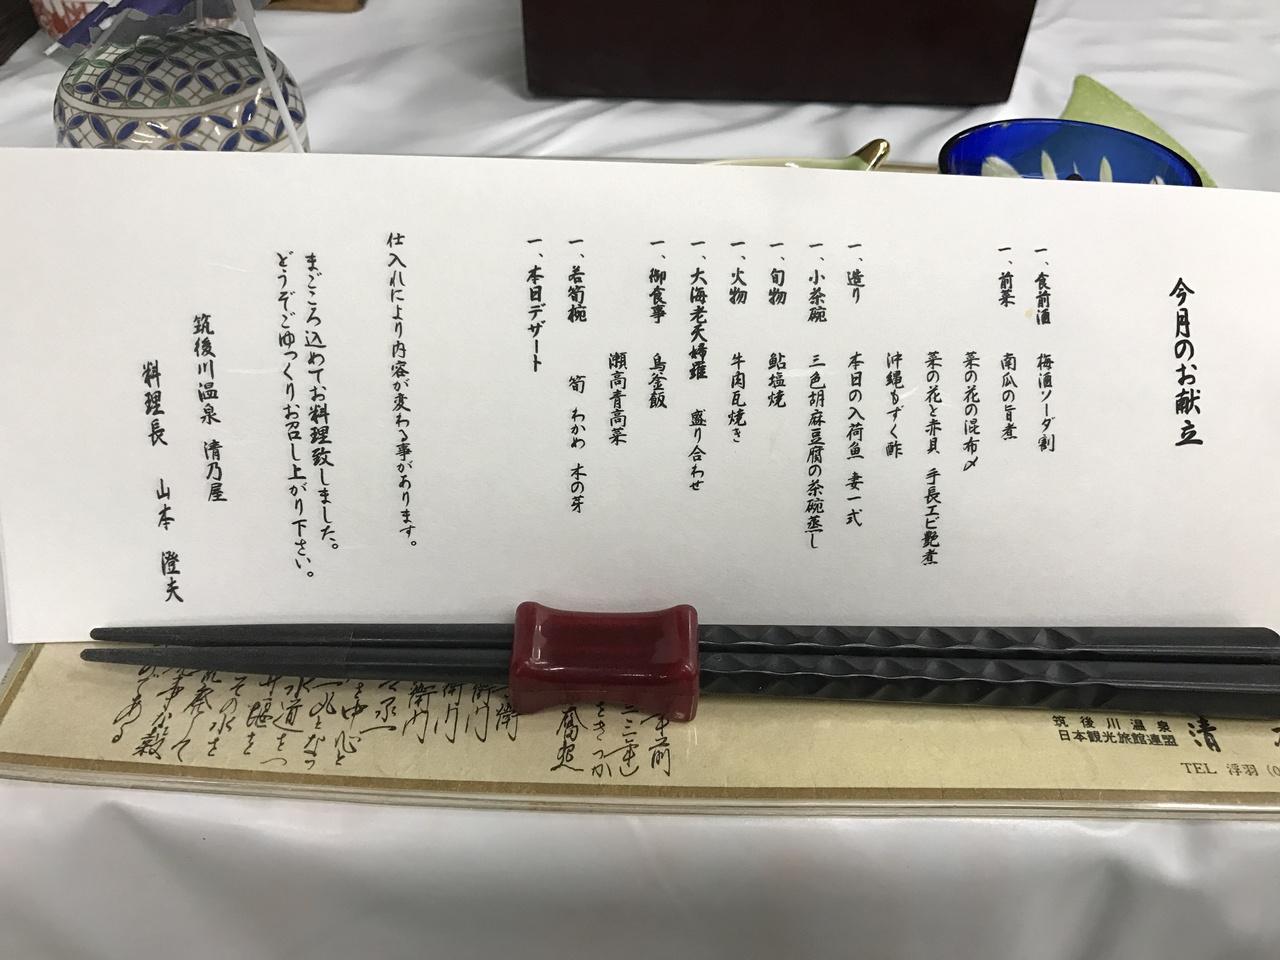 今月のお献立
一、食前酒　梅酒ソーダ割
一、前菜　南瓜の旨煮
菜の花の混布〆
菜の花と赤貝　手長エビ艶煮
沖縄もずく酢
一、造り　本日の入荷魚　妻一式
一、小茶碗　三色胡麻豆腐の茶碗蒸し
一、旬物　鮎塩焼
一、火物　牛肉瓦焼き
一、大海老天婦羅　盛り合わせ
一、御食事　鳥釜飯
瀬高青高菜
一、若筍椀　筍　わかめ　木の芽
一、本日デザート
仕入れにより内容が変わる事があります。
まごころ込めてお料理致しました。
どうぞごゆっくりお召し上がり下さい。
筑後川温泉　清乃屋
料理長　山本　澄夫
筑後川温泉
日本観光旅館連盟
清
TEL 浮羽 (0